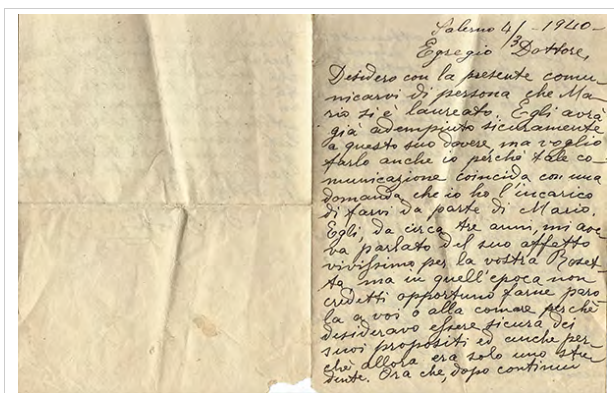 Salerno 4/3 - 1940 -
Egregio Dottore,
Desidero con la presente comu
nicarvi di persona che Ma
rio si è laureato. Egli avrà
già adempiuto sicuramente
a questo suo dovere, ma voglio
farlo anche io perché tale co-
municazione coincida con una
domanda che io ho l'incarico
di farvi da parte di Mario.
Egli, da circa tre anni, mi ave
va parlato del suo affetto
vivissimo per la vostra Roset
ta ma in quell'epoca non
credetti opportuno farne paro
la a voi o alla comare perché
desideravo essere sicura dei
suoi propositi ed anche per-
ché allora era solo uno stu
dente. Ora che, dopo continui